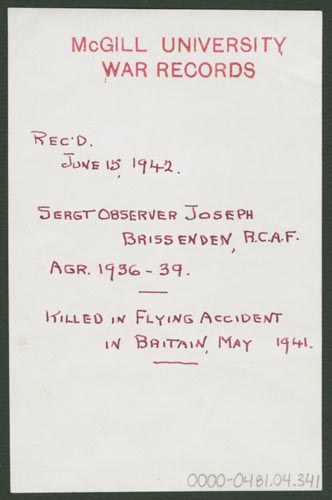 McGILL UNIVERSITY
WAR RECORDS
REC'D.
JUNE 15, 1942.
SERGT OBSERVER JOSEPH
BRISSENDEN, R.C.A.F.
AGR. 1936-39.
KILLED IN FLYING ACCIDENT
IN BRITAIN, MAY 1941.
0000-0481.04.341